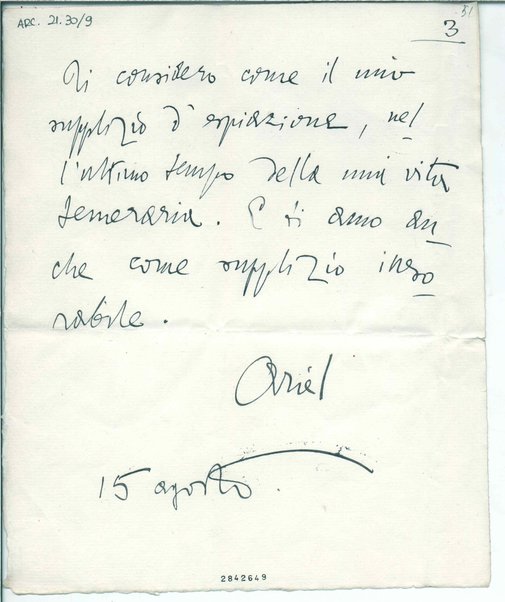 ARC. 21.30/9
51
3
Ti considero come il mio
supplizio d'espiazione, nel
l'ultimo tempo della mia vita
temeraria. E ti amo an
che come supplizio ineso
rabile.
Ariel
15 agosto.
2842649